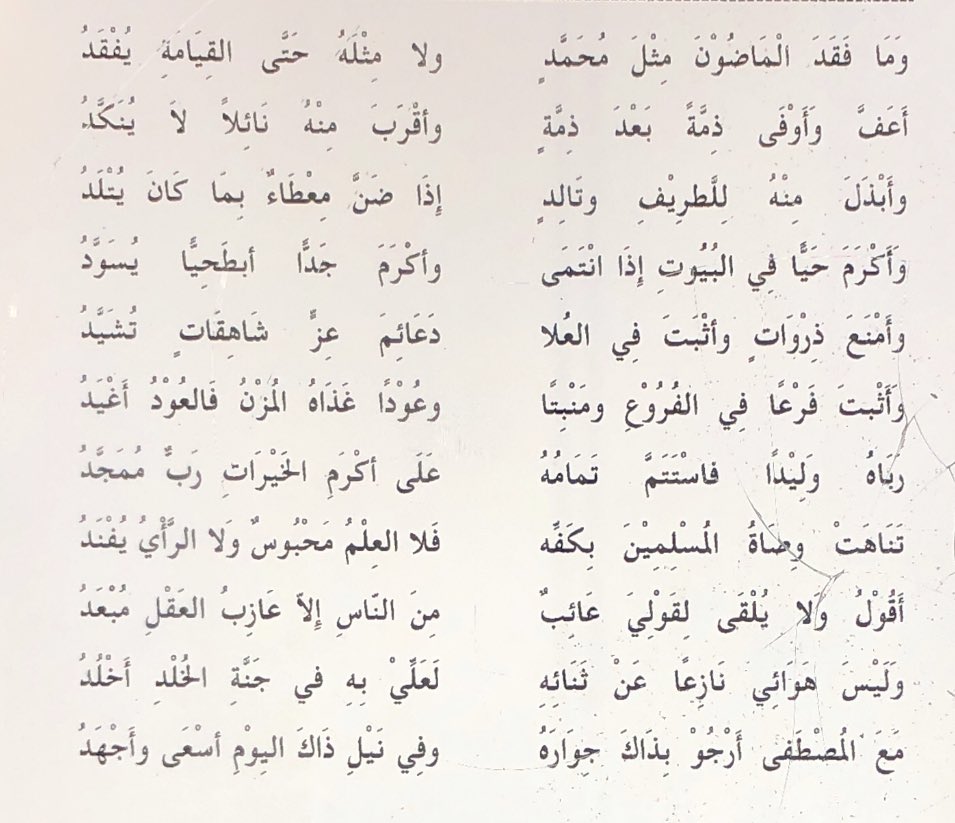 وَمَا فَقَدَ الْمَاضُوْنَ مِثْلَ مُحَمَّدٍ ولا مِثْلَهُ حَتَّى القِيَامَةِ يُفْقَدُ
أَعَفَّ وَأَوْفَى ذِمَّةً بَعْدَ ذِمَّةٍ وأقْرَبَ مِنْهُ نَائِلاً لاَ يُنَكَّدُ
وأَبْذَلَ مِنْهُ لِلَّطرِيْفِ وتَالِدٍ إِذَا ضَنَّ مِعْطَاءٌ بِمَا كَانَ يُتْلَدُ
وَأَكْرَمَ حَيًّا فِي البُيُوتِ إِذَا انْتَمَى وأكْرَمَ جَدًّا أبطَحِيًّا يُسَوَّدُ
وأَمْنَعَ ذِرْوَاتٍ وأثْبَتَ فِي العُلا دَعَائِمَ عِزٍّ شَاهِقَاتٍ تُشَيَّدُ
وَأَثْبتَ فَرْعًا فِي الفُرُوْعِ ومَنْبِتًا وعُوْدًا غَذَاهُ المُزْنُ فَالعُوْدُ أَغْيَدُ
ربَاهُ وَلِيْدًا فاسْتَتَمَّ تَمَامُهُ عَلَى أكْرَمِ الخَيْرَاتِ رَبٌّ مُمَجَّدُ
تَنَاهَتْ وِصَاةُ المُسْلِمِيْنَ بِكَفِّه فَلا العِلْمُ مَحْبُوسٌ وَلا الرَّأْيُ يُفْنَدُ
أَقُوْلُ وَلا يُلْقَى لِقوْلِيَ عَائِبٌ مِنَ النّاسِ إِلاّ عَازِبُ العَقْلِ مُبْعَدُ
وَلَيْسَ هَوَائِي نَازِعًا عَنْ ثَنَائِهِ لَعَلِّيْ بِهِ في جَنَّةِ الخُلْدِ أَخْلُدُ
مَعَ المُصْطَفى أَرْجُوْ بِذَاكَ جِوَارَهُ وفِي نَيْلِ ذَاكَ اليوْمِ أسْعَى وأَجْهَدُ